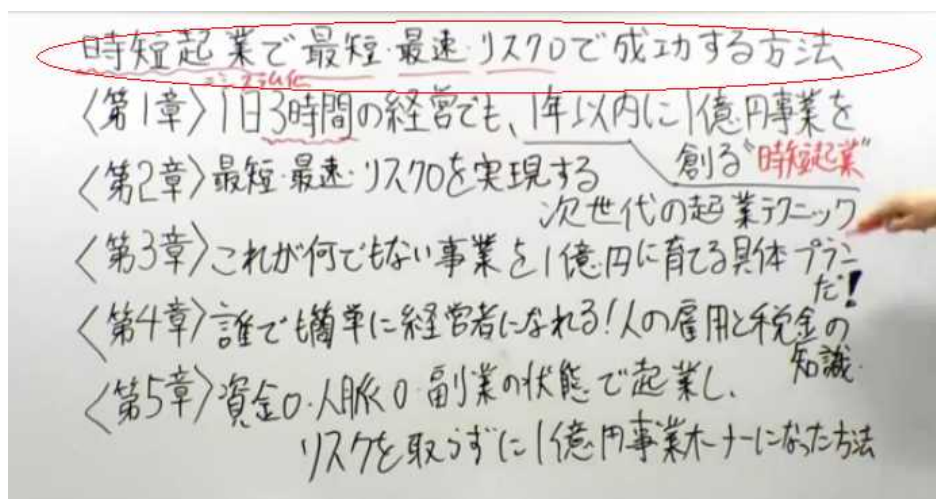 時短起業で最短・最速・リスク0で成功する方法
〈第1章〉1日3時間の経営でも、1年以内に1億円事業を
創る"時短起業"
〈第2章〉最短・最速・リスク0を実現する
次世代の起業テクニック
〈第3章〉これが何でもない事業を1億円に育てる具体プラン
だ!
〈第4章〉誰でも簡単に経営者になれる!人の雇用と税金の
知識
〈第5章〉資金0・人脈0・副業の状態で起業し、
リスクを取らずに1億円事業オーナーになった方法